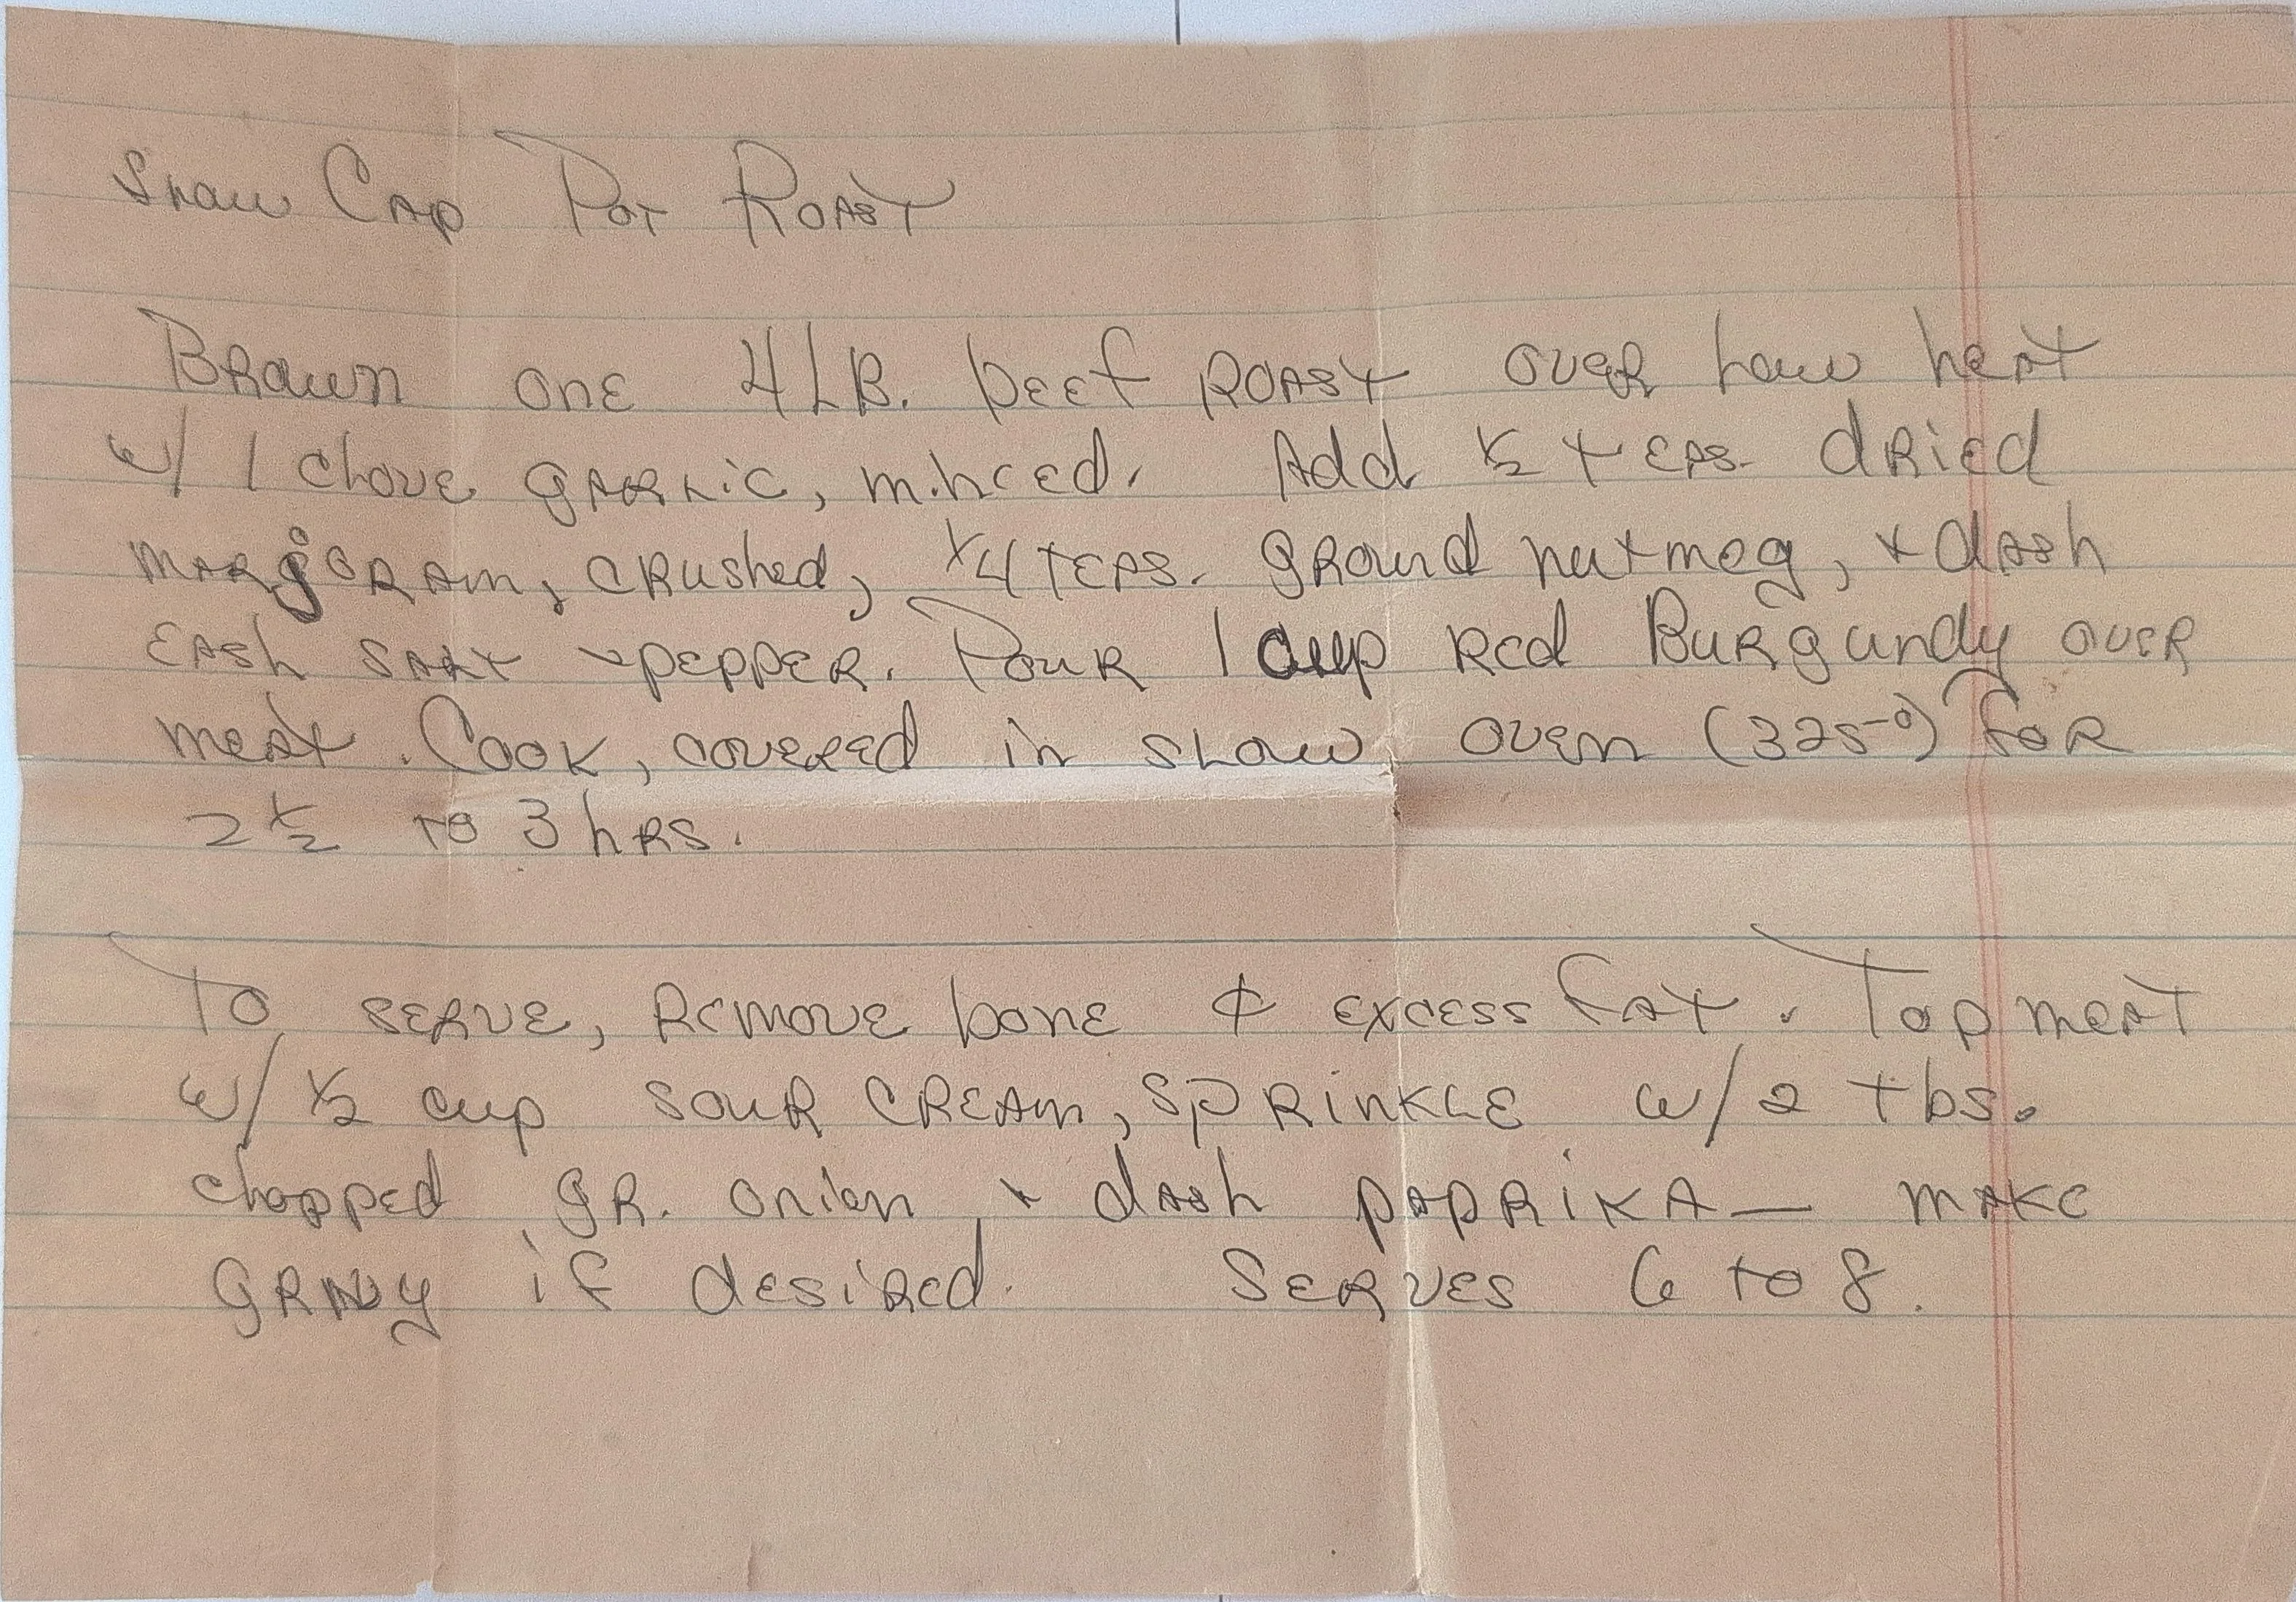 Snow Cap Pot Roast
Brown one 4 LB. beef roast over low heat
w/ 1 clove garlic, minced. Add ½ teas. dried
marjoram, crushed, ¼ teas. ground nutmeg, + dash
each salt + pepper. Pour 1 cup red Burgundy over
meat. Cook, covered in slow oven (325°) for
2 ½ to 3 hrs.
To serve, remove bone & excess fat. Top meat
w/ ½ cup sour cream, sprinkle w/ 2 tbs.
chopped gr. onion + dash paprika — make
gravy if desired. Serves 6 to 8.